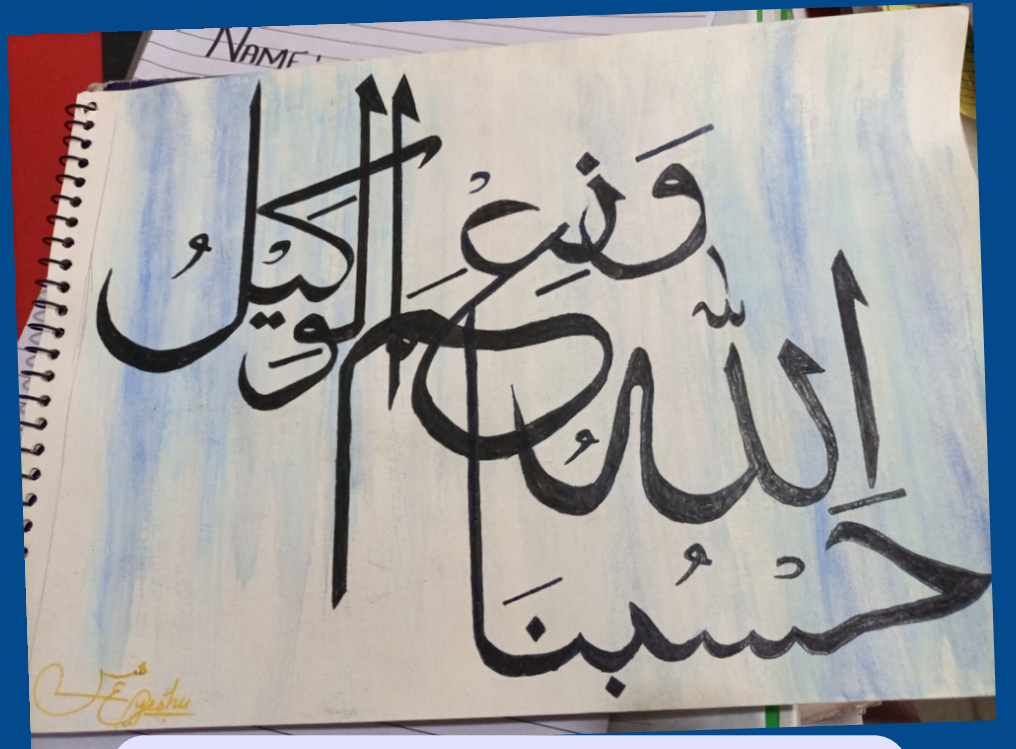 NAME :
حَسْبُنَا
اللّٰهُ
وَنِعْمَ
الوَكِيْلُ